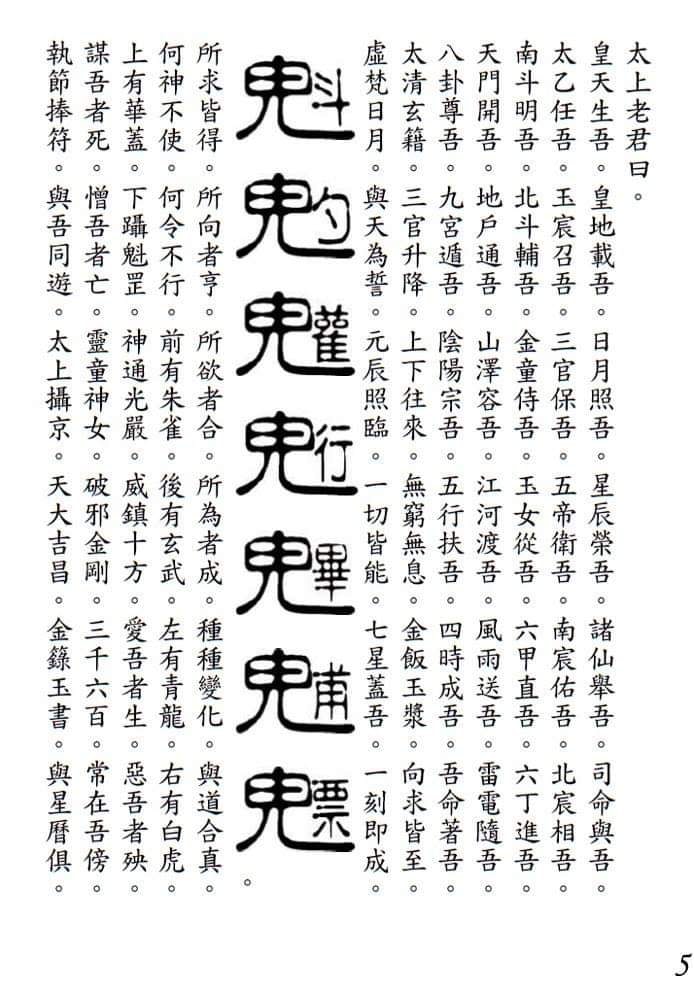 太上老君曰。
皇天生吾。皇地載吾。日月照吾。星辰榮吾。諸仙舉吾。司命與吾。
太乙任吾。玉宸召吾。三官保吾。五帝衛吾。南宸佑吾。北宸相吾。
南斗明吾。北斗輔吾。金童侍吾。玉女從吾。六甲直吾。六丁進吾。
天門開吾。地戶通吾。山澤容吾。江河渡吾。風雨送吾。雷電隨吾。
八卦尊吾。九宮遁吾。陰陽宗吾。五行扶吾。四時成吾。吾命著吾。
太清玄籍。三官升降。上下往來。無窮無息。金飯玉漿。向求皆至。
虛梵日月。與天為誓。元辰照臨。一切皆能。七星蓋吾。一刻即成。
魁𩲃𩵄䰢魓𩳐魒。
所求皆得。所向者亨。所欲者合。所為者成。種種變化。與道合真。
何神不使。何令不行。前有朱雀。後有玄武。左有青龍。右有白虎。
上有華蓋。下躡魁罡。神通光嚴。威鎮十方。愛吾者生。惡吾者殃。
謀吾者死。憎吾者亡。靈童神女。破邪金剛。三千六百。常在吾傍。
執節捧符。與吾同遊。太上攝京。天大吉昌。金籙玉書。與星曆俱。
5